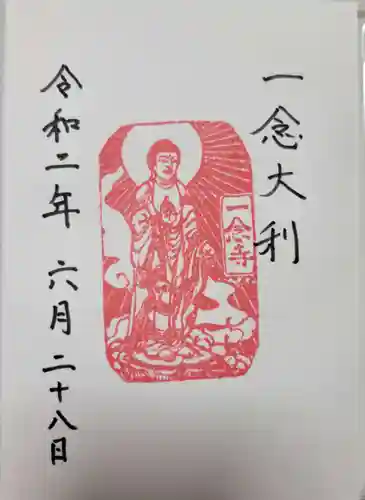 一念大利
一念寺
令和二年 六月 二十八日